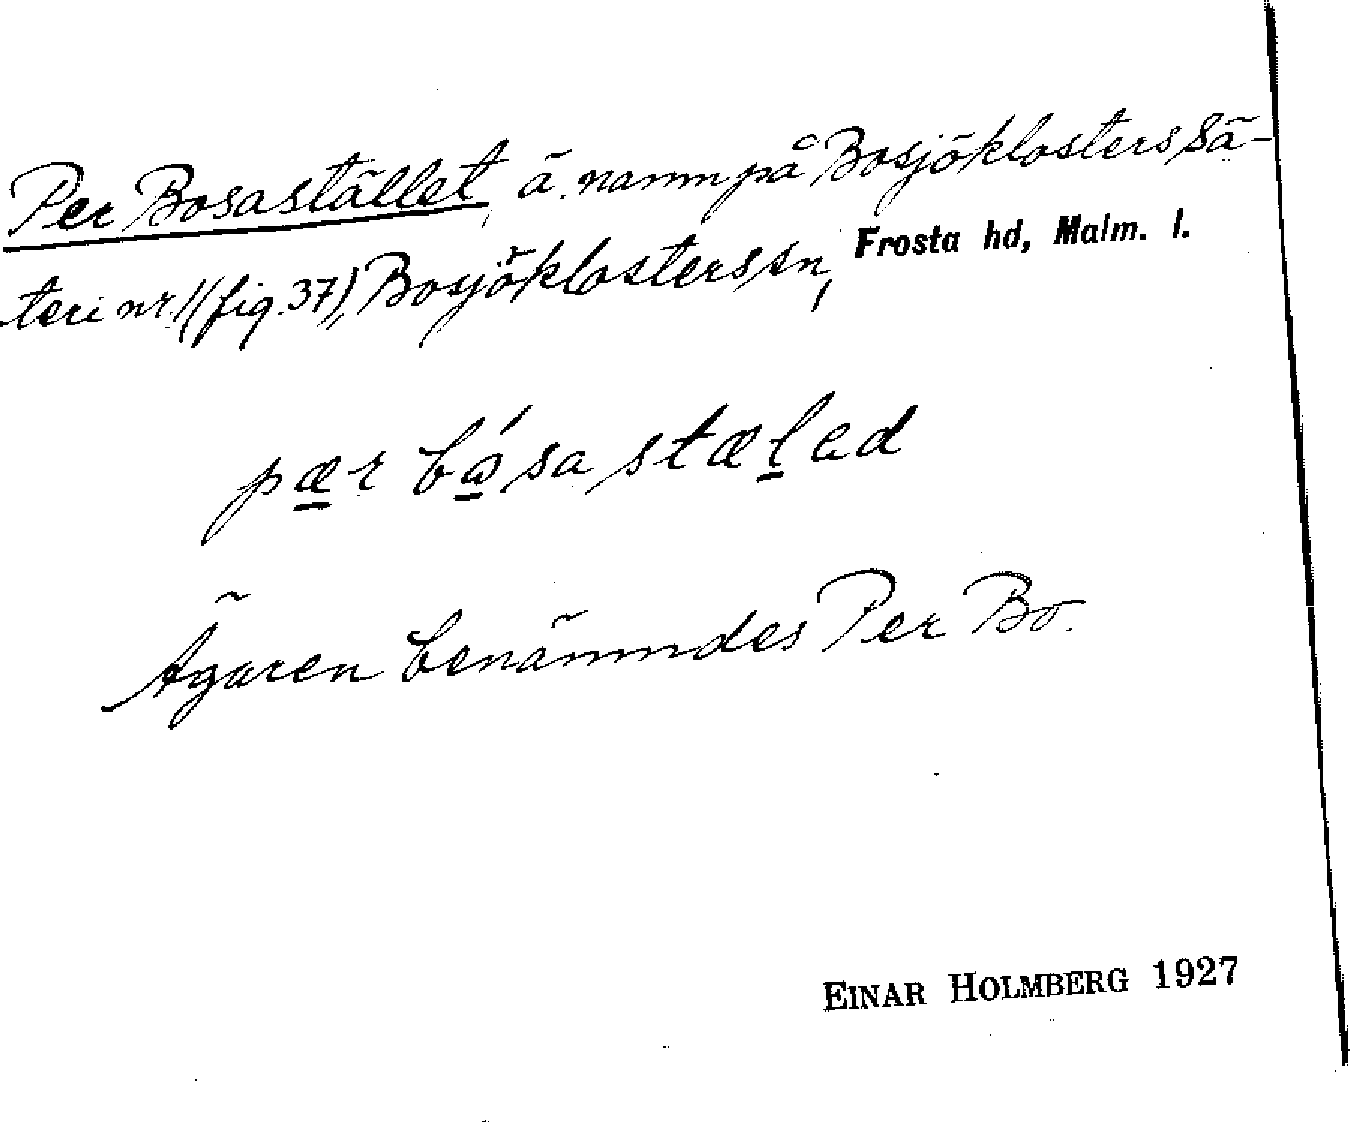 Per Bosastället, ä. namn på Bosjöklosters Sä-
teri nr 1 (fig. 37), Bosjöklosters sn, Frosta hd, Malm. l.
pær bósa stælad
Ägaren benämndes Per Bo.
EINAR HOLMBERG 1927